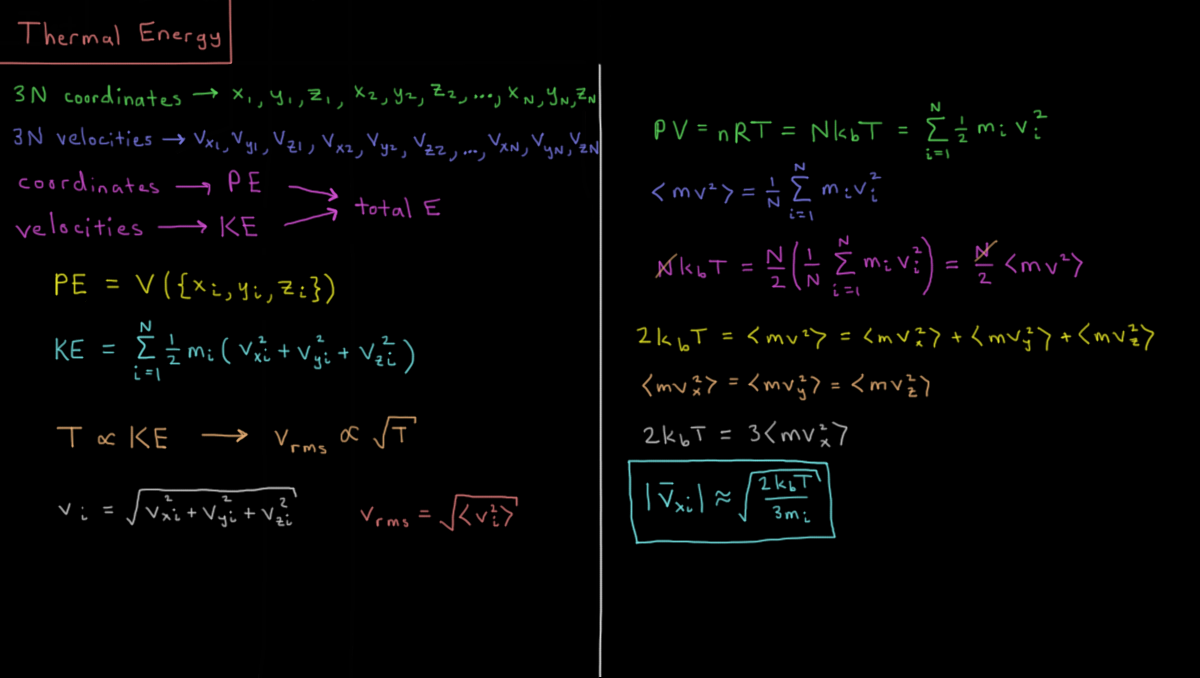 Thermal Energy
3N coordinates → x₁, y₁, z₁, x₂, y₂, z₂, ..., x_N, y_N, z_N
3N velocities → v_x1, v_y1, v_z1, v_x2, v_y2, v_z2, ..., v_xN, v_yN, v_zN
coordinates → PE
velocities → KE
total E
PE = V({x_i, y_i, z_i})
KE = Σ_{i=1}^{N} ½ m_i (v_xi² + v_yi² + v_zi²)
T ∝ KE → v_rms ∝ √T
v_i = √(v_xi² + v_yi² + v_zi²)
v_rms = √⟨v_i²⟩
PV = nRT = Nk_bT = Σ_{i=1}^{N} ½ m_i v_i²
⟨mv²⟩ = 1/N Σ_{i=1}^{N} m_i v_i²
Nk_bT = N/2 (1/N Σ_{i=1}^{N} m_i v_i²) = N/2 ⟨mv²⟩
2k_bT = ⟨mv²⟩ = ⟨mv_x²⟩ + ⟨mv_y²⟩ + ⟨mv_z²⟩
⟨mv_x²⟩ = ⟨mv_y²⟩ = ⟨mv_z²⟩
2k_bT = 3⟨mv_x²⟩
|v̄_xi| ≈ √(2k_bT / 3m_i)